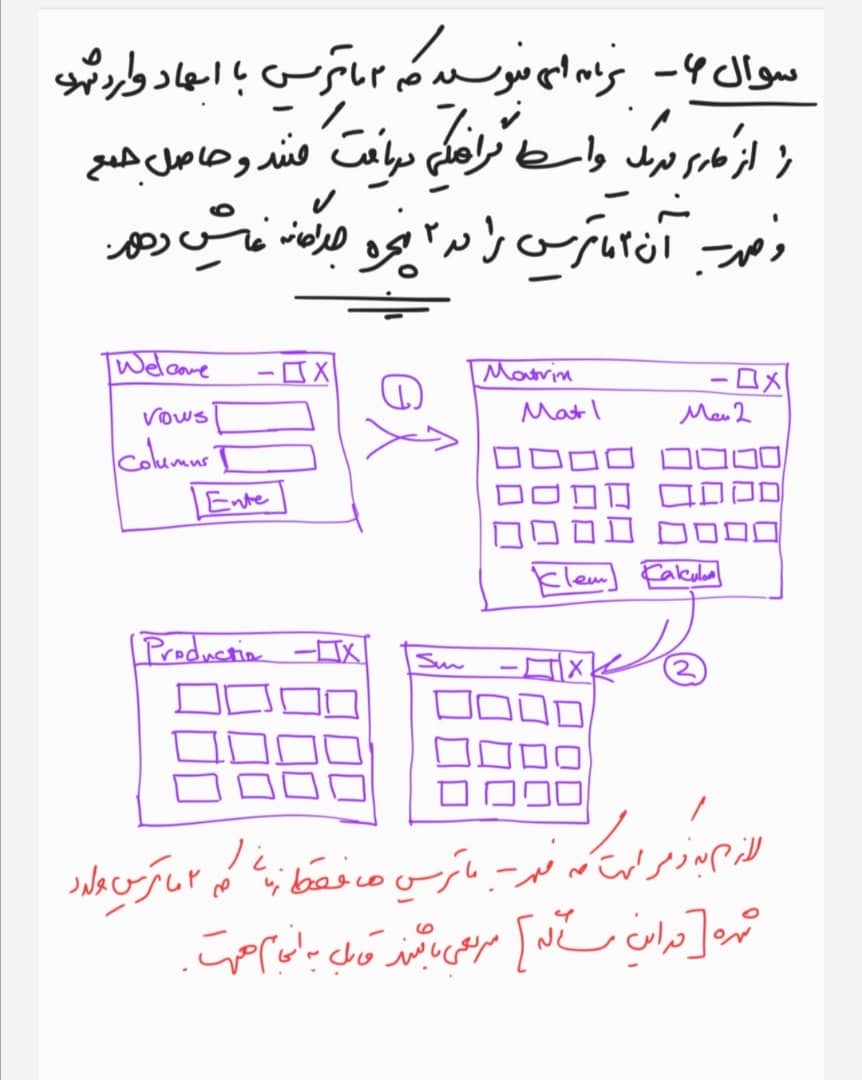 سوال ۶- برنامه ای بنویسید که ۲ ماتریس با ابعاد وارد شده
را از کاربر در یک واسط گرافیکی دریافت کند و حاصل جمع
و ضرب آن ۲ ماتریس را در ۲ پنجره جداگانه نمایش دهد.
Welcome - □ X
rows
Columns
Ente
①
Matrix - □ X
Mat 1 Mat 2
Clear Calculat
②
Production - □ X
Sum - □ X
لازم به ذکر است که ضرب ماتریس ها فقط زمانی که ۲ ماتریس وارد
شده [در این مسأله] مربعی باشند قابل به انجام است.